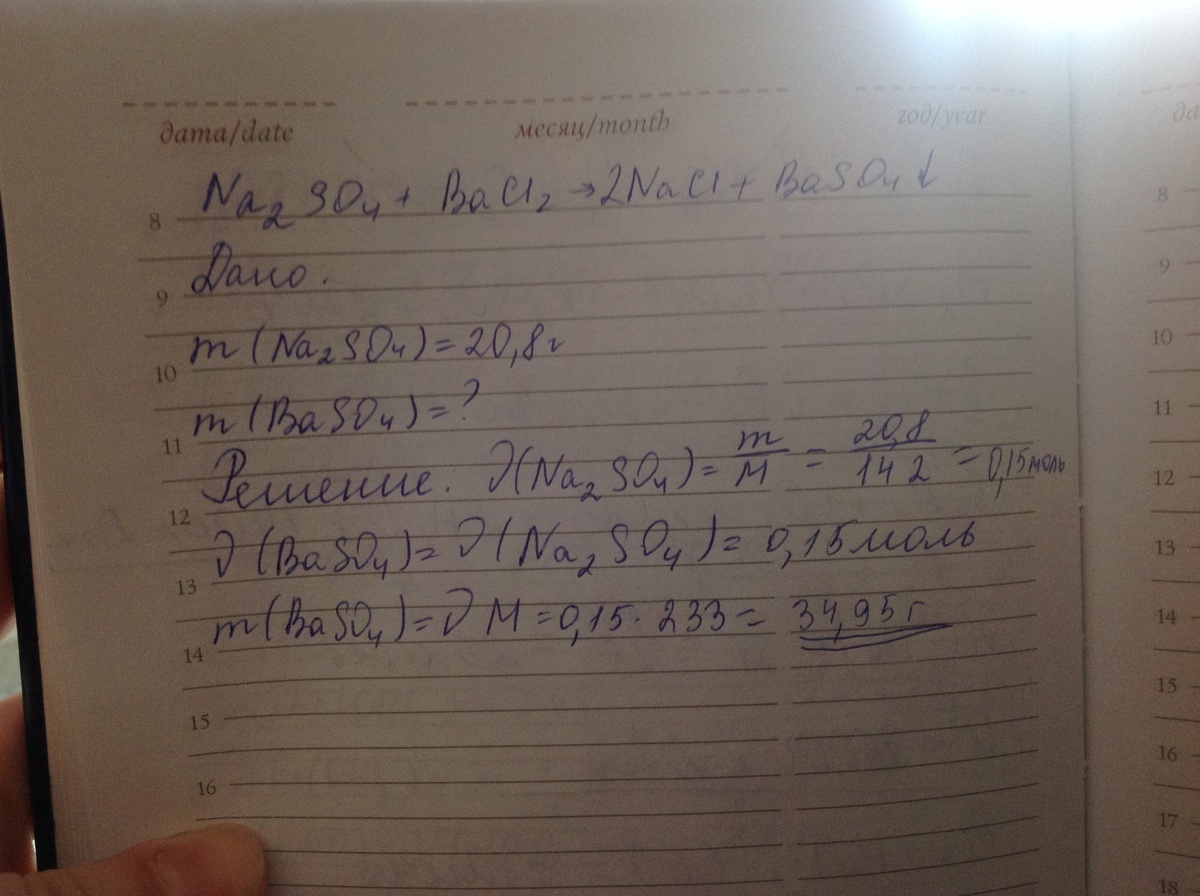 дата/date месяц/month год/year
8 Na₂SO₄ + BaCl₂ → 2NaCl + BaSO₄↓ 8
9 Дано. 9
10 m(Na₂SO₄) = 20,8г 10
11 m(BaSO₄) = ? 11
12 Решение: ν(Na₂SO₄) = m/M = 20,8/142 = 0,15моль 12
13 ν(BaSO₄) = ν(Na₂SO₄) = 0,15моль 13
14 m(BaSO₄) = ν M = 0,15 · 233 = 34,95г 14
15 15
16 16
17
18